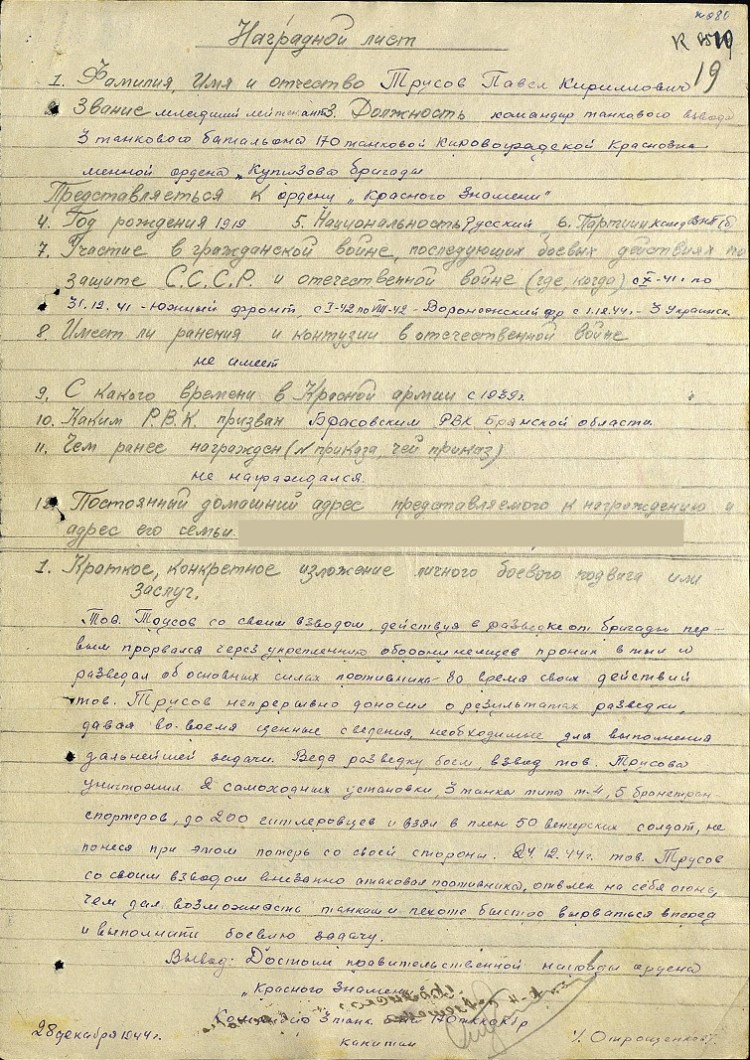 Наградной лист
19
1. Фамилия, Имя и отчество Трусов Павел Кириллович
2. Звание младший лейтенант 3. Должность командир танкового взвода
3 танкового батальона 170 танковой Кировоградской Краснозна-
менной ордена „Кутузова бригады
Представляеться к ордену „Красного Знамени"
4. Год рождения 1919 5. Национальность Русский 6. Партийн. канд. ВКП(б)
7. Участие в гражданской войне, последующих боевых действиях по
защите С.С.С.Р. и отечественной войне (где, когда) с X-41г. по
31.12.41 - Южный фронт, с I-42 по VIII-42 - Воронежский фр. с 1.12.44г. - 3 Украинск.
8. Имеет ли ранения и контузии в отечественной войне
не имеет
9. С какого времени в Красной армии с 1939г.
10. Каким Р.В.К. призван Брасовским РВК Брянской области.
11. Чем ранее награжден (N приказа, чей приказ)
не награждался.
12. Постоянный домашний адрес представляемого к награждению и
адрес его семьи.
1. Краткое, конкретное изложение личного боевого подвига или
заслуг.
Тов. Трусов со своим взводом, действуя в разведке от бригады пер-
вым прорвался через укрепленную оборону немцев проник в тыл и
разведал об основных силах противника. Во время своих действий
тов. Трусов непрерывно доносил о результатах разведки,
давая во-время ценные сведения, необходимые для выполнения
дальнейшей задачи. Ведя разведку боем, взвод тов. Трусова
уничтожил 2 самоходных установки, 3 танка типа т-4, 5 бронетран-
спортеров, до 200 гитлеровцев и взял в плен 50 венгерских солдат, не
понеся при этом потерь со своей стороны. 24.12.44г. тов. Трусов
со своим взводом внезапно атаковал противника, отвлек на себя огонь,
чем дал возможность танкам и пехоте быстро вырваться вперед
и выполнить боевую задачу.
Вывод: Достоин правительственной награды ордена
„Красного Знамени"
Командир 3 танк. б-на 170 тккокбр
капитан /Отрощенков/
28 декабря 1944г.